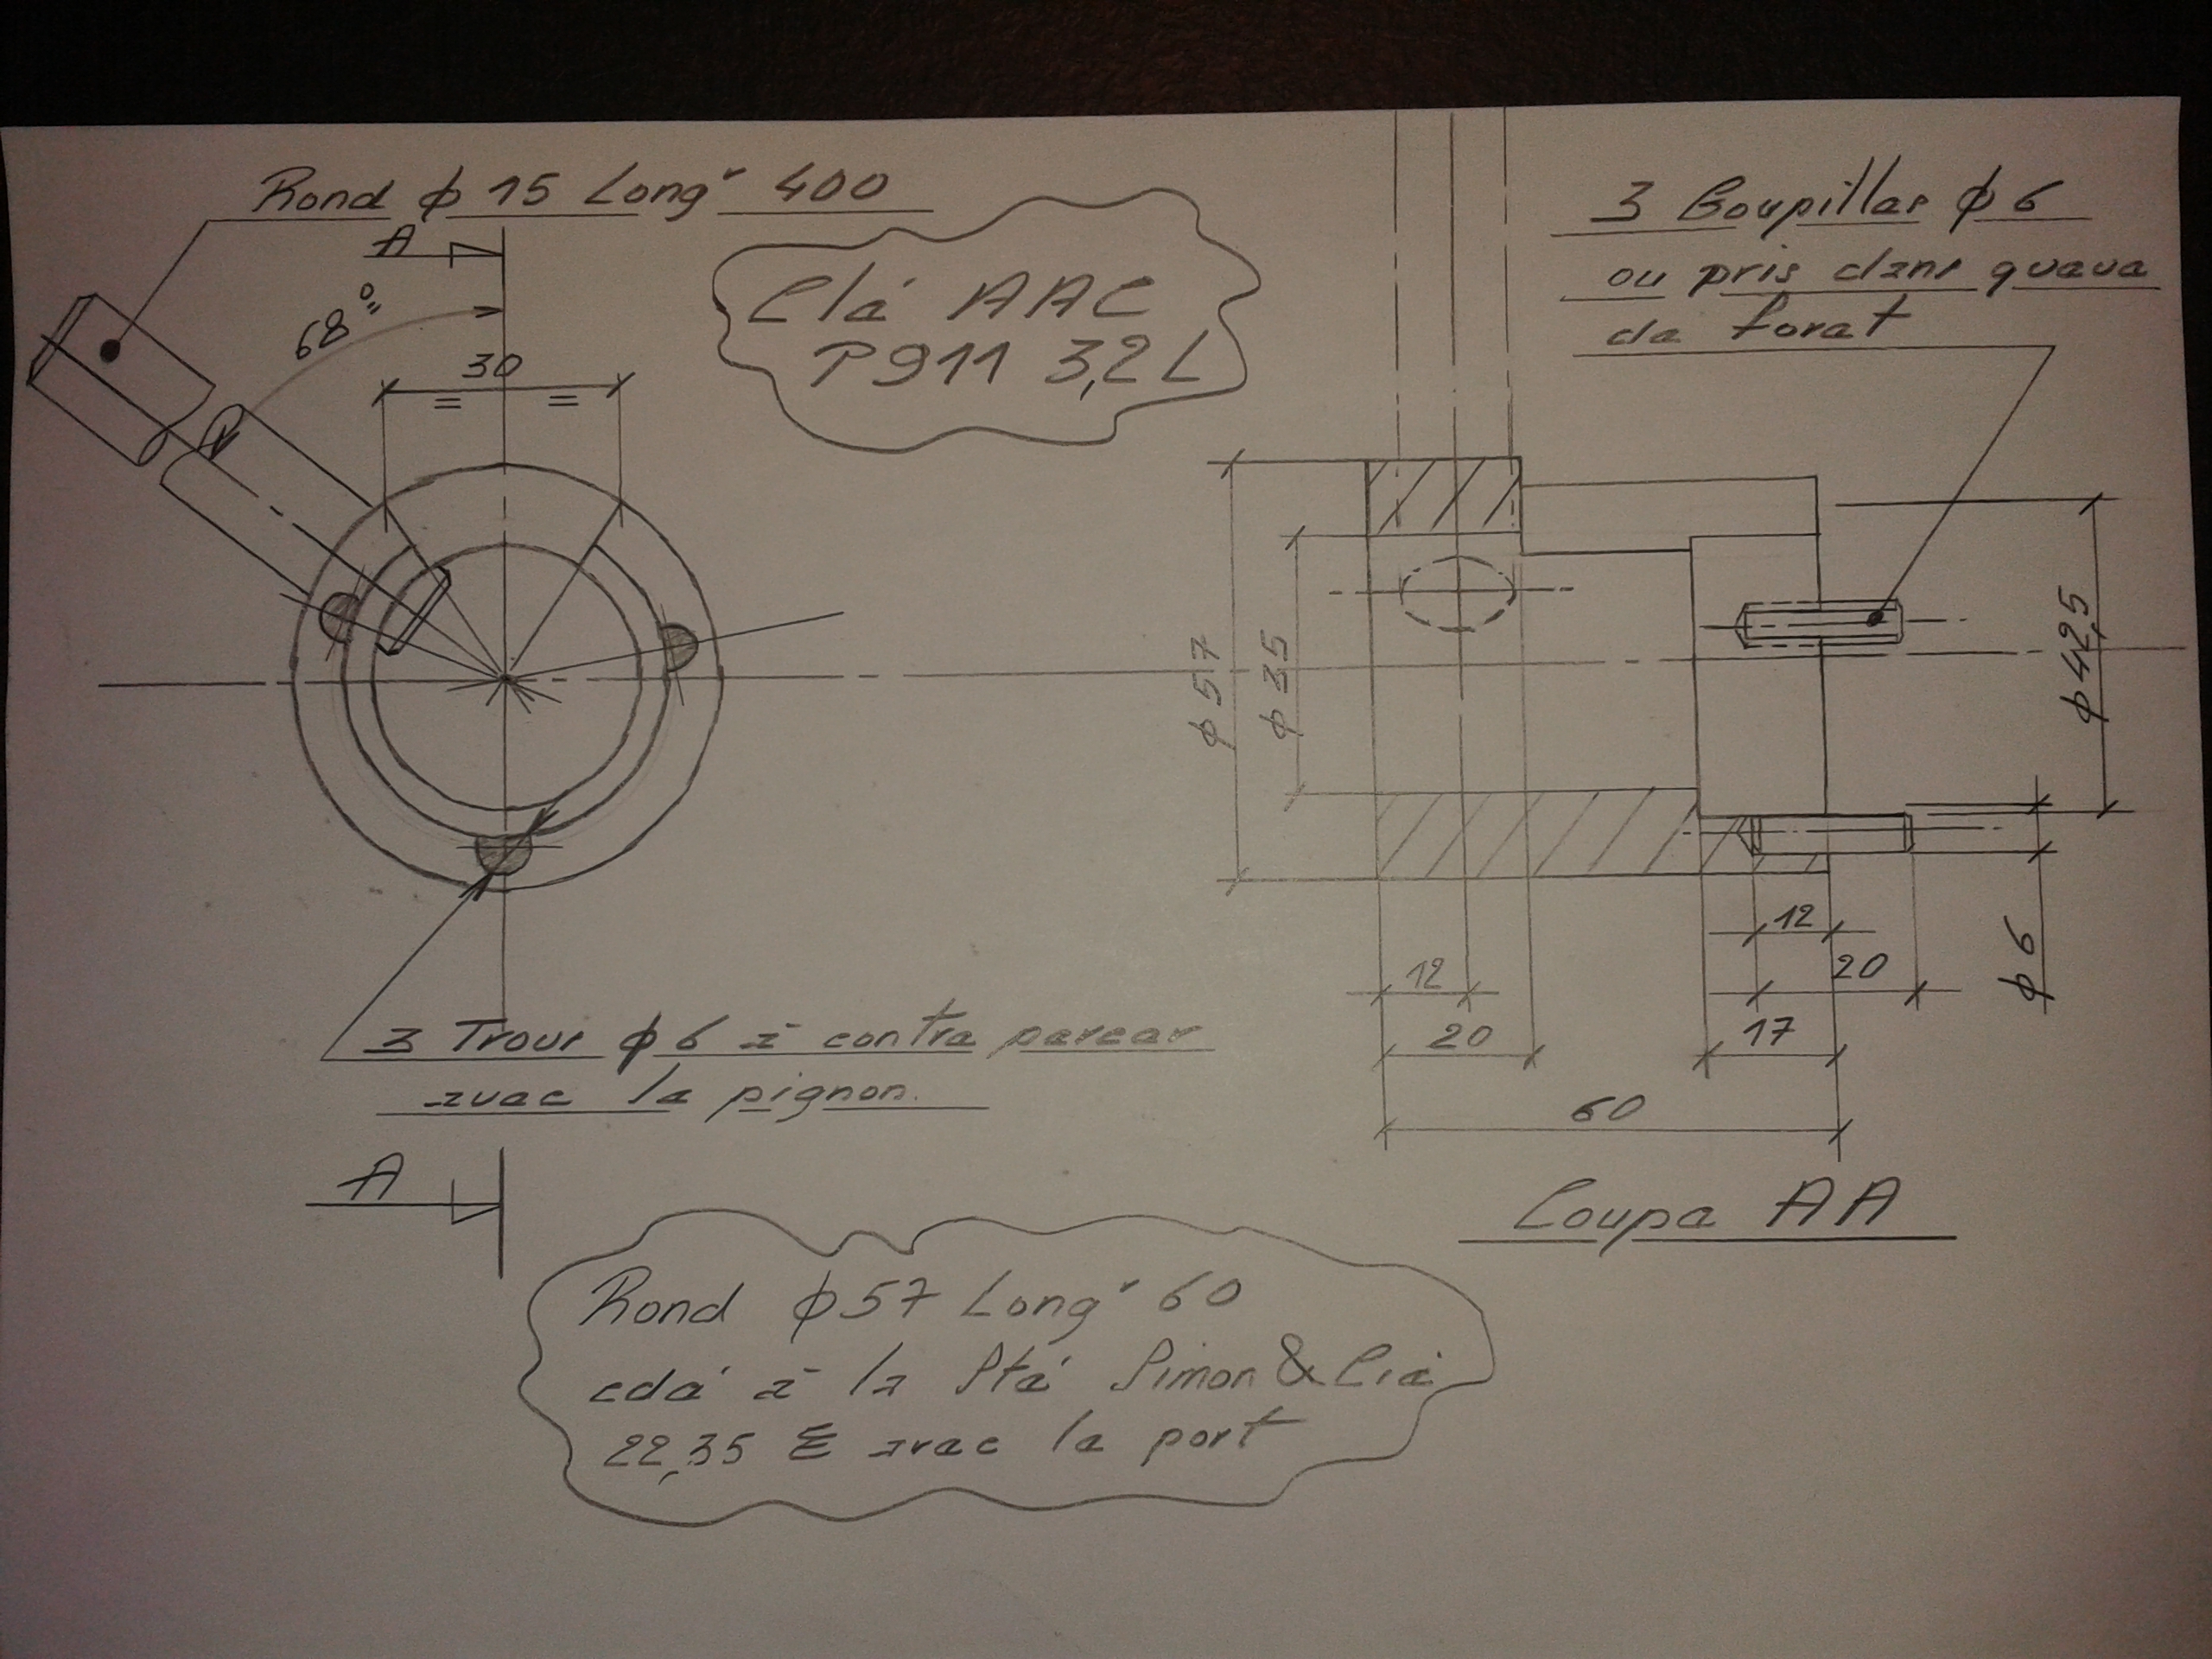 Rond ϕ 15 Longr 400
A
68°
30
= =
Clé AAC
P911 3,2L
3 Goupilles ϕ 6
ou pris dans queue
de foret
ϕ 57
ϕ 35
ϕ 42,5
ϕ 6
12
20
12
20
17
60
3 Trous ϕ 6 à contre percer
avec le pignon.
A
Coupe AA
Rond ϕ57 Longr 60
cdé à la Sté Simon & Cie
22,35 € avec le port